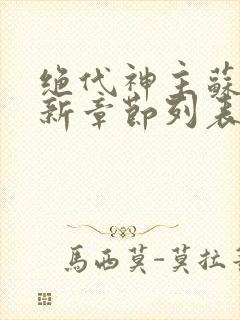 绝代神主蘇
新章節列表
馬西莫-莫拉